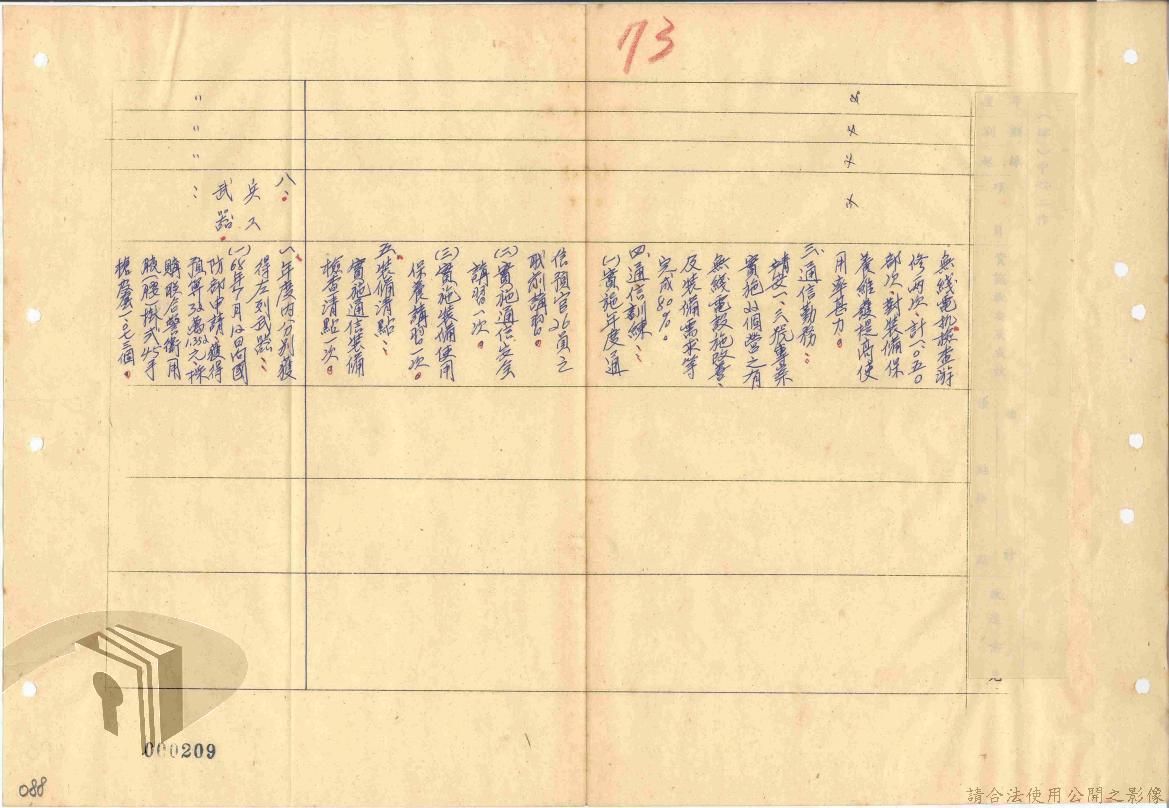 73
無線電機檢查游
修兩次,計一、〇五〇
部次,對裝備保
養維護提高使
用率甚力。
三、通信勤務:
精安一、三號專案
實施22個營之有
無線電設施改善、
及裝備需求等
完成80%。
四、通信訓練:
㈠實施年度通
信預官26員之
職前講習。
㈡實施通信安全
講習一次。
㈢實施裝備使用
保養講習一次。
五、裝備清點:
實施通信裝備
檢查清點一次。
八、
兵工
武器:
一、年度內分別獲
得左列武器:
㈠68年7月12日向國
防部申請獲得
預算
購
槍
000209
088
請合法使用公開之影像